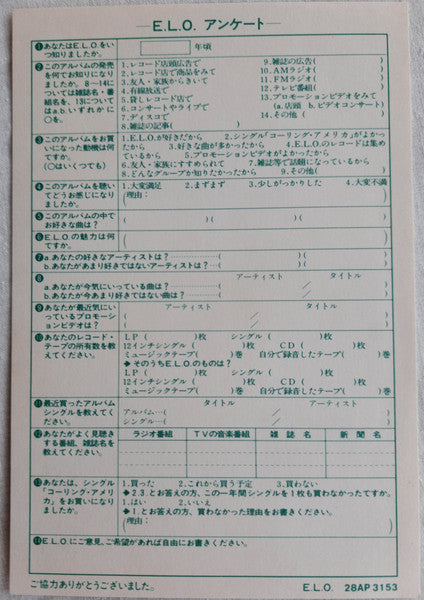 E.L.O. アンケート
①あなたはE.L.O.をいつ知りましたか。
年頃
②このアルバムの発売を何でお知りになりましたか。8〜14については雑誌名・番組名を、13についてはa.b.いずれかに○を。
1.レコード店頭広告で
2.レコード店で商品をみて
3.友人・家族からきいて
4.有線放送で
5.貸しレコード店で
6.コンサートやライブで
7.ディスコで
8.雑誌の記事( )
9.雑誌の広告( )
10.AMラジオ( )
11.FMラジオ( )
12.テレビ番組( )
13.プロモーションビデオをみて
(a.店頭 b.ビデオコンサート)
14.その他( )
③このアルバムをお買いになった動機は何ですか。(○はいくつでも)
1.E.L.O.が好きだから 2.シングル「コーリング・アメリカ」がよかったから
3.好きな曲が多かったから 4.E.L.O.のレコードは集めているから
5.プロモーションビデオがよかったから
6.友人・家族にすすめられて 7.雑誌等で話題になっているから
8.どんなグループか知りたかったから 9.その他( )
④このアルバムを聴いてどうお感じになりましたか。
1.大変満足 2.まずまず 3.少しがっかりした 4.大変不満
(理由: )
⑤このアルバムの中でお好きな曲は?
( )( )( )
⑥E.L.O.の魅力は何ですか。
( )
⑦a.あなたの好きなアーティストは?‥‥‥( )( )
b.あなたがあまり好きではないアーティストは?‥( )( )
⑧ アーティスト タイトル
a.あなたが今気にいっている曲は?‥‥( / )
b.あなたが今あまり好きではない曲は?‥( / )
⑨あなたが最近気にいっているプロモーションビデオは?
アーティスト タイトル
( / )
⑩あなたのレコード・テープの所有数を教えてください。
LP ( )枚 シングル ( )枚
12インチシングル( )枚 CD ( )枚
ミュージックテープ( )巻 自分で録音したテープ( )巻
➔そのうちE.L.O.のものは?
LP ( )枚 シングル ( )枚
12インチシングル( )枚 CD ( )枚
ミュージックテープ( )巻 自分で録音したテープ( )巻
⑪最近買ったアルバムシングルを教えてください。
タイトル アーティスト
アルバム‥‥( / )
シングル‥‥( / )
⑫あなたがよく見聴きする番組、雑誌名を教えてください。
ラジオ番組 TVの音楽番組 雑誌名 新聞名
⑬あなたは、シングル「コーリング・アメリカ」をお買いになりましたか。
1.買った 2.これから買う予定 3.買わない
➔2.3.とお答えの方、この一年間シングルを1枚も買わなかったですか。
1.はい 2.いいえ
➔1.とお答えの方、買わなかった理由をお書きください。
(理由: )
⑭E.L.O.にご意見、ご希望があれば自由にお書きください。
ご協力ありがとうございました。
E.L.O. 28AP3153